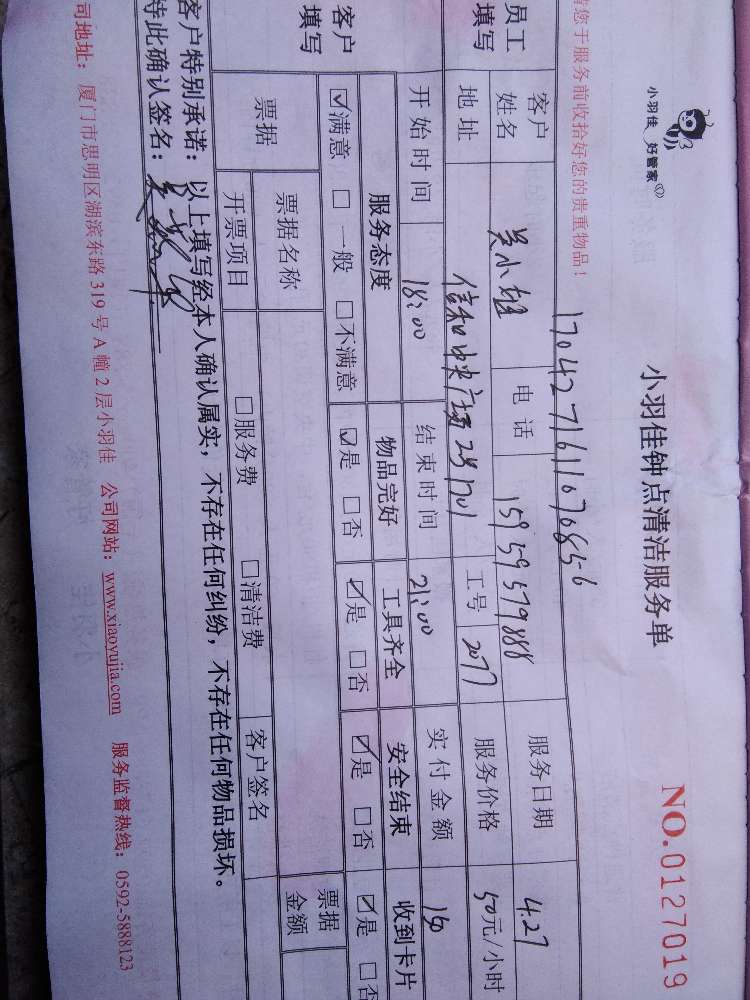 小羽佳 好管家
小羽佳钟点清洁服务单
NO.0127019
您于服务前收拾好您的贵重物品！
1704271611070856
员工填写
客户姓名 吴小姐 电话 15959579888 服务日期 4.27
地址 信和中央广场 2# 1701 工号 2077 服务价格 50元/小时
开始时间 18:00 结束时间 21:00 实付金额 150
客户填写
服务态度 物品完好 工具齐全 安全结束 收到卡片
☑满意 □一般 □不满意 ☑是 □否 ☑是 □否 ☑是 □否 ☑是 □否
票据 票据名称 票据金额
开票项目 □服务费 □清洁费 客户签名
客户特别承诺：以上填写经本人确认属实，不存在任何纠纷，不存在任何物品损坏。
特此确认签名：
司地址：厦门市思明区湖滨东路319号A幢2层小羽佳 公司网站：www.xiaoyujia.com 服务监督热线：0592-5888123